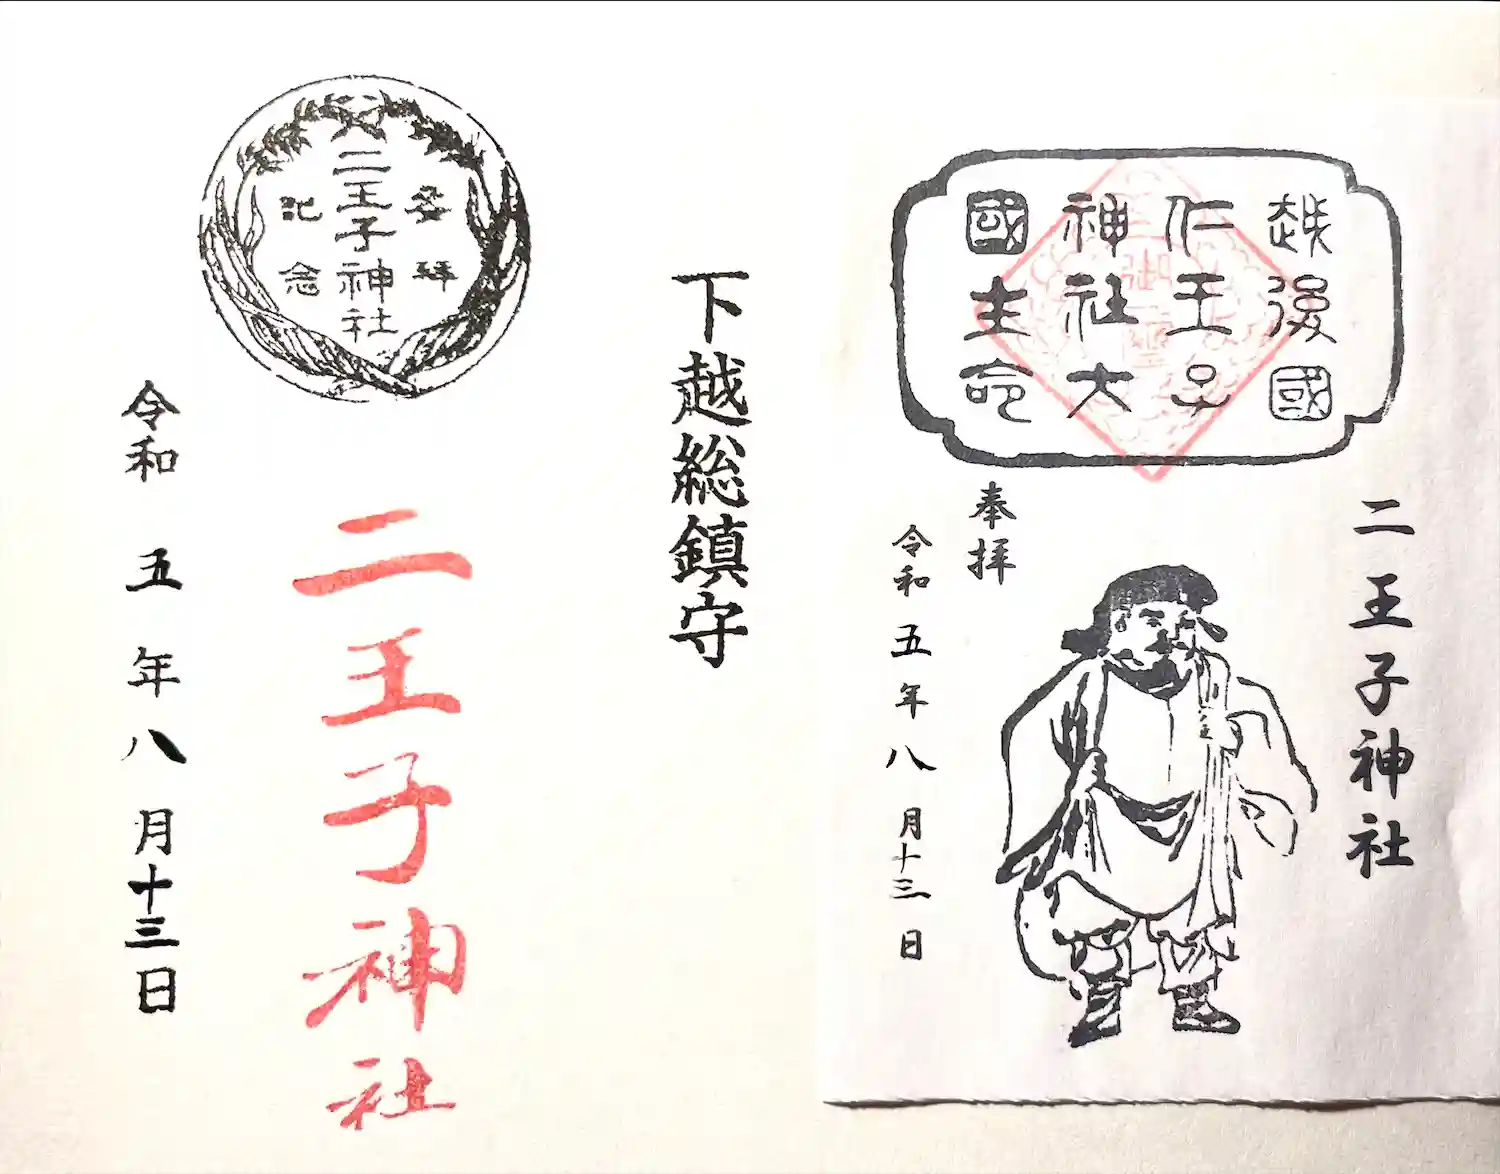 二王子神社
奉拝
令和五年八月十三日
越後國
仁王子
神社大
國主命
下越総鎮守
参拝
二王子神社
記念
二王子神社
令和五年八月十三日